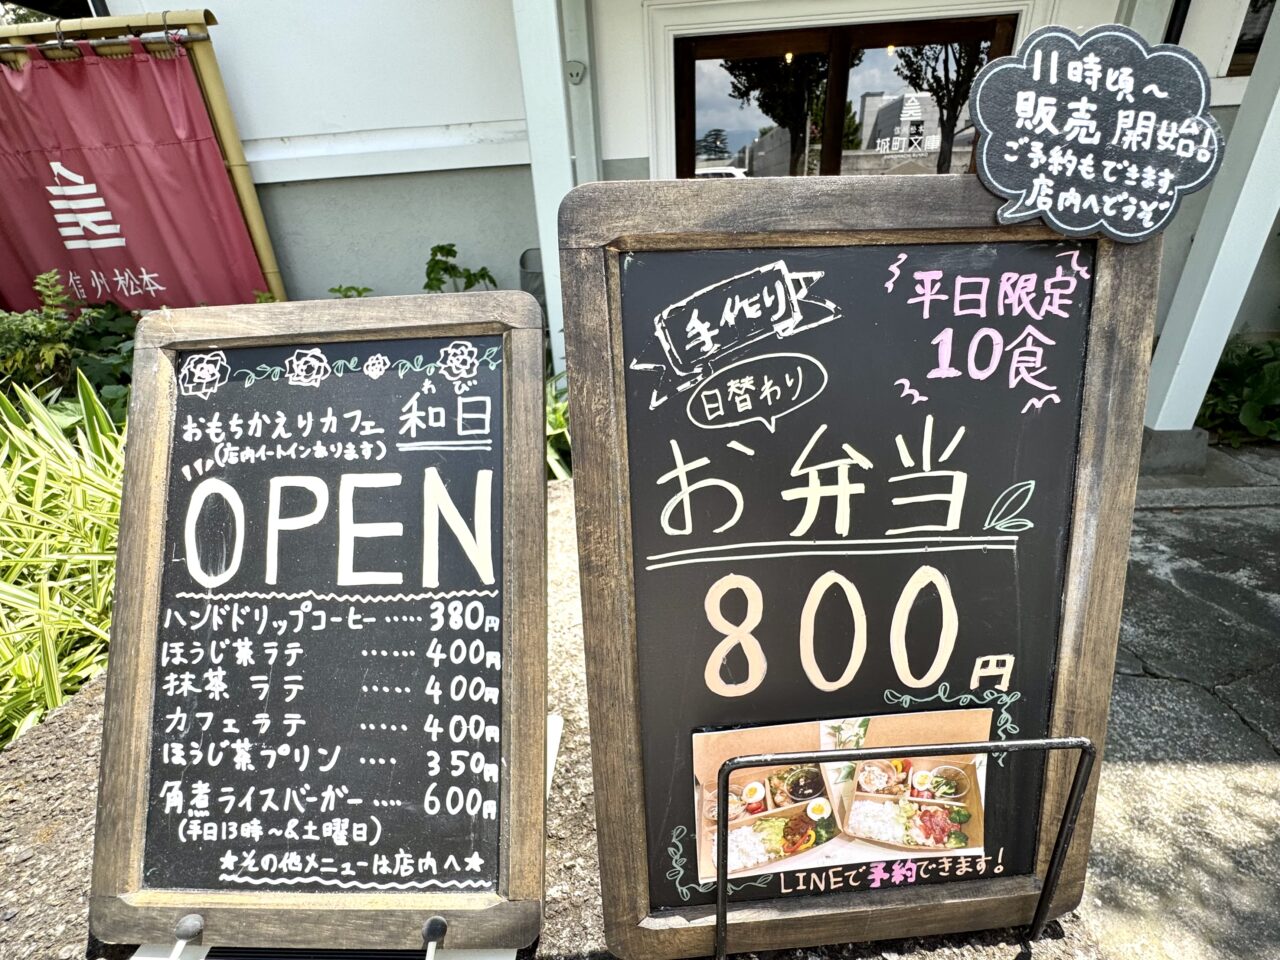 信州松本
信州松本
城町文庫
11時頃〜
販売開始!
ご予約もできます。
店内へどうぞ
わび
おもちかえりカフェ 和日
(店内イートインあります)
OPEN
ハンドドリップコーヒー……380円
ほうじ茶ラテ ……400円
抹茶ラテ ……400円
カフェラテ ……400円
ほうじ茶プリン …350円
角煮ライスバーガー……600円
(平日13時〜&土曜日)
★その他メニューは店内へ★
手作り
平日限定
10食
日替わり
お弁当
800円
LINEで予約できます!